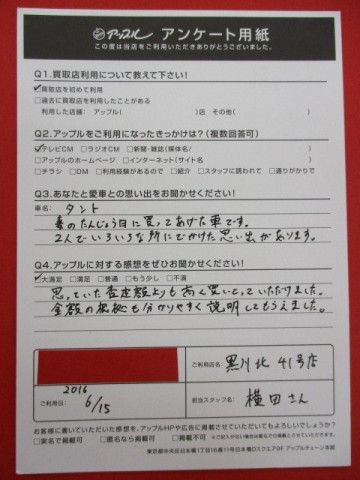 アップル アンケート用紙
この度は当店をご利用いただきありがとうございました。
Q1.買取店利用について教えて下さい!
☑買取店を初めて利用
□過去に買取店を利用したことがある
利用した店舗：アップル( )店 その他( )
Q2.アップルをご利用になったきっかけは?(複数回答可)
☑テレビCM □ラジオCM □新聞・雑誌(媒体名 )
□アップルのホームページ □インターネット(サイト名 )
□チラシ □DM □利用経験があるので □紹介 □スタッフに誘われて □通りがかりで
Q3.あなたと愛車との思い出をお聞かせください!
車名：タント
妻のたんじょう日に買ってあげた車です。
2人でいろいろな所にでかけた思い出があります。
Q4.アップルに対する感想をぜひお聞かせください!
☑大満足 □満足 □普通 □もう少し □不満
思っていた査定額よりも高く買いとっていただけました。
金額の根拠も分かりやすく説明してもらえました。
ご利用店名：黒川北41号店
2016
ご利用日：6/15
担当スタッフ名：横田さん
お客様に書いていただいた感想を、アップルHPや広告に掲載させていただいてもよろしいでしょうか?
□実名で掲載可 □匿名なら掲載可 掲載不可 ※ご記入がない場合は匿名での掲載とさせていただきます。
東京都中央区日本橋1丁目16番11号日本橋Dスクエア9F アップルチェーン本部